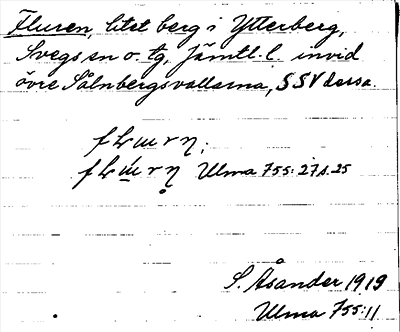 Fluren, litet berg i Ytterberg,
Svegs sn o. tg, Jämtl. l. invid
övre Sålnbergsvallarna, SSV dessa.
Ulma 755: 27 s. 25
S. Åsander 1919
Ulma 755:11